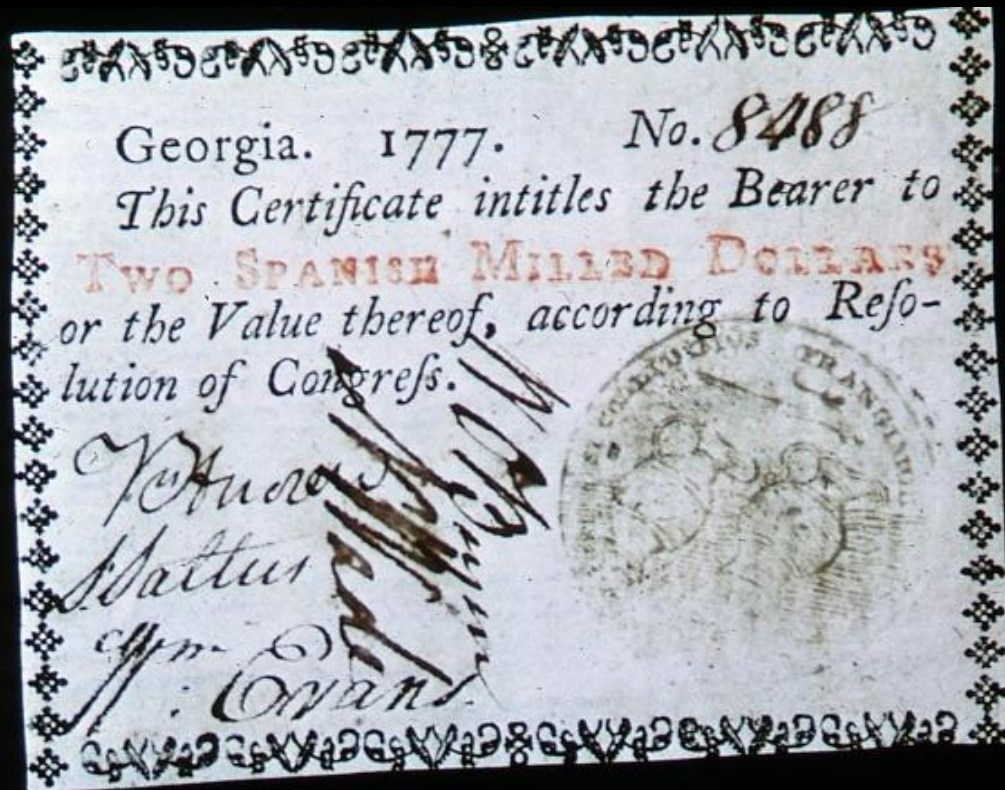 Georgia. 1777. No. 8488
This Certificate intitles the Bearer to
TWO SPANISH MILLED DOLLARS
or the Value thereof, according to Reſo-
lution of Congreſs.
Wm
Evans